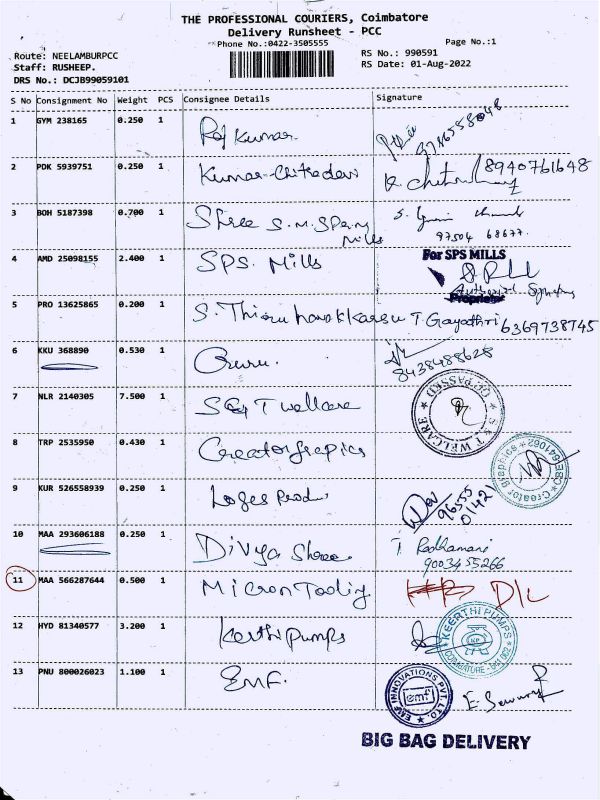 THE PROFESSIONAL COURIERS, Coimbatore
Delivery Runsheet - PCC
Phone No.:0422-3505555
Page No.:1
Route: NEELAMBURPCC
Staff: RUSHEEP.
DRS No.: DCJB99059101
RS No.: 990591
RS Date: 01-Aug-2022
S No Consignment No Weight PCS Consignee Details Signature
1 GYM 238165 0.250 1 Raj Kumar
2 PDK 5939751 0.250 1 Kumar-Chitradevi 8940761648
3 BOH 5187398 0.700 1 Shree S.M. Sping Mills 97504 68677
4 AMD 25098155 2.400 1 SPS. Mills
For SPS MILLS
Proprietor
5 PRO 13625865 0.200 1 S. Thirunavukkarasu T. Gayathri 6369738745
6 KKU 368890 0.530 1 Guru 8438488628
7 NLR 2140305 7.500 1 S&T wellcare
S & T WELCARE
8 TRP 2535950 0.430 1 Creatorgrapics
Creator grapics
9 KUR 526558939 0.250 1 Loges Produ 96555 01421
10 MAA 293606188 0.250 1 Divya Shree T. Radhamani
9003455266
11 MAA 566287644 0.500 1 Micron Tooling D/L
12 HYD 81340577 3.200 1 Kerthi Pumps
KEERTHI PUMPS
COIMBATORE
13 PNU 800026023 1.100 1 EMF.
EMF INNOVATIONS PVT. LTD.
emf
BIG BAG DELIVERY